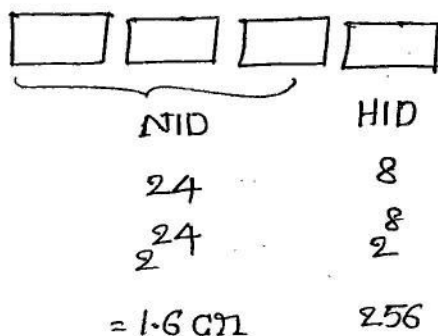 NID HID
24 8
2^24 2^8
= 1.6 Cr 256